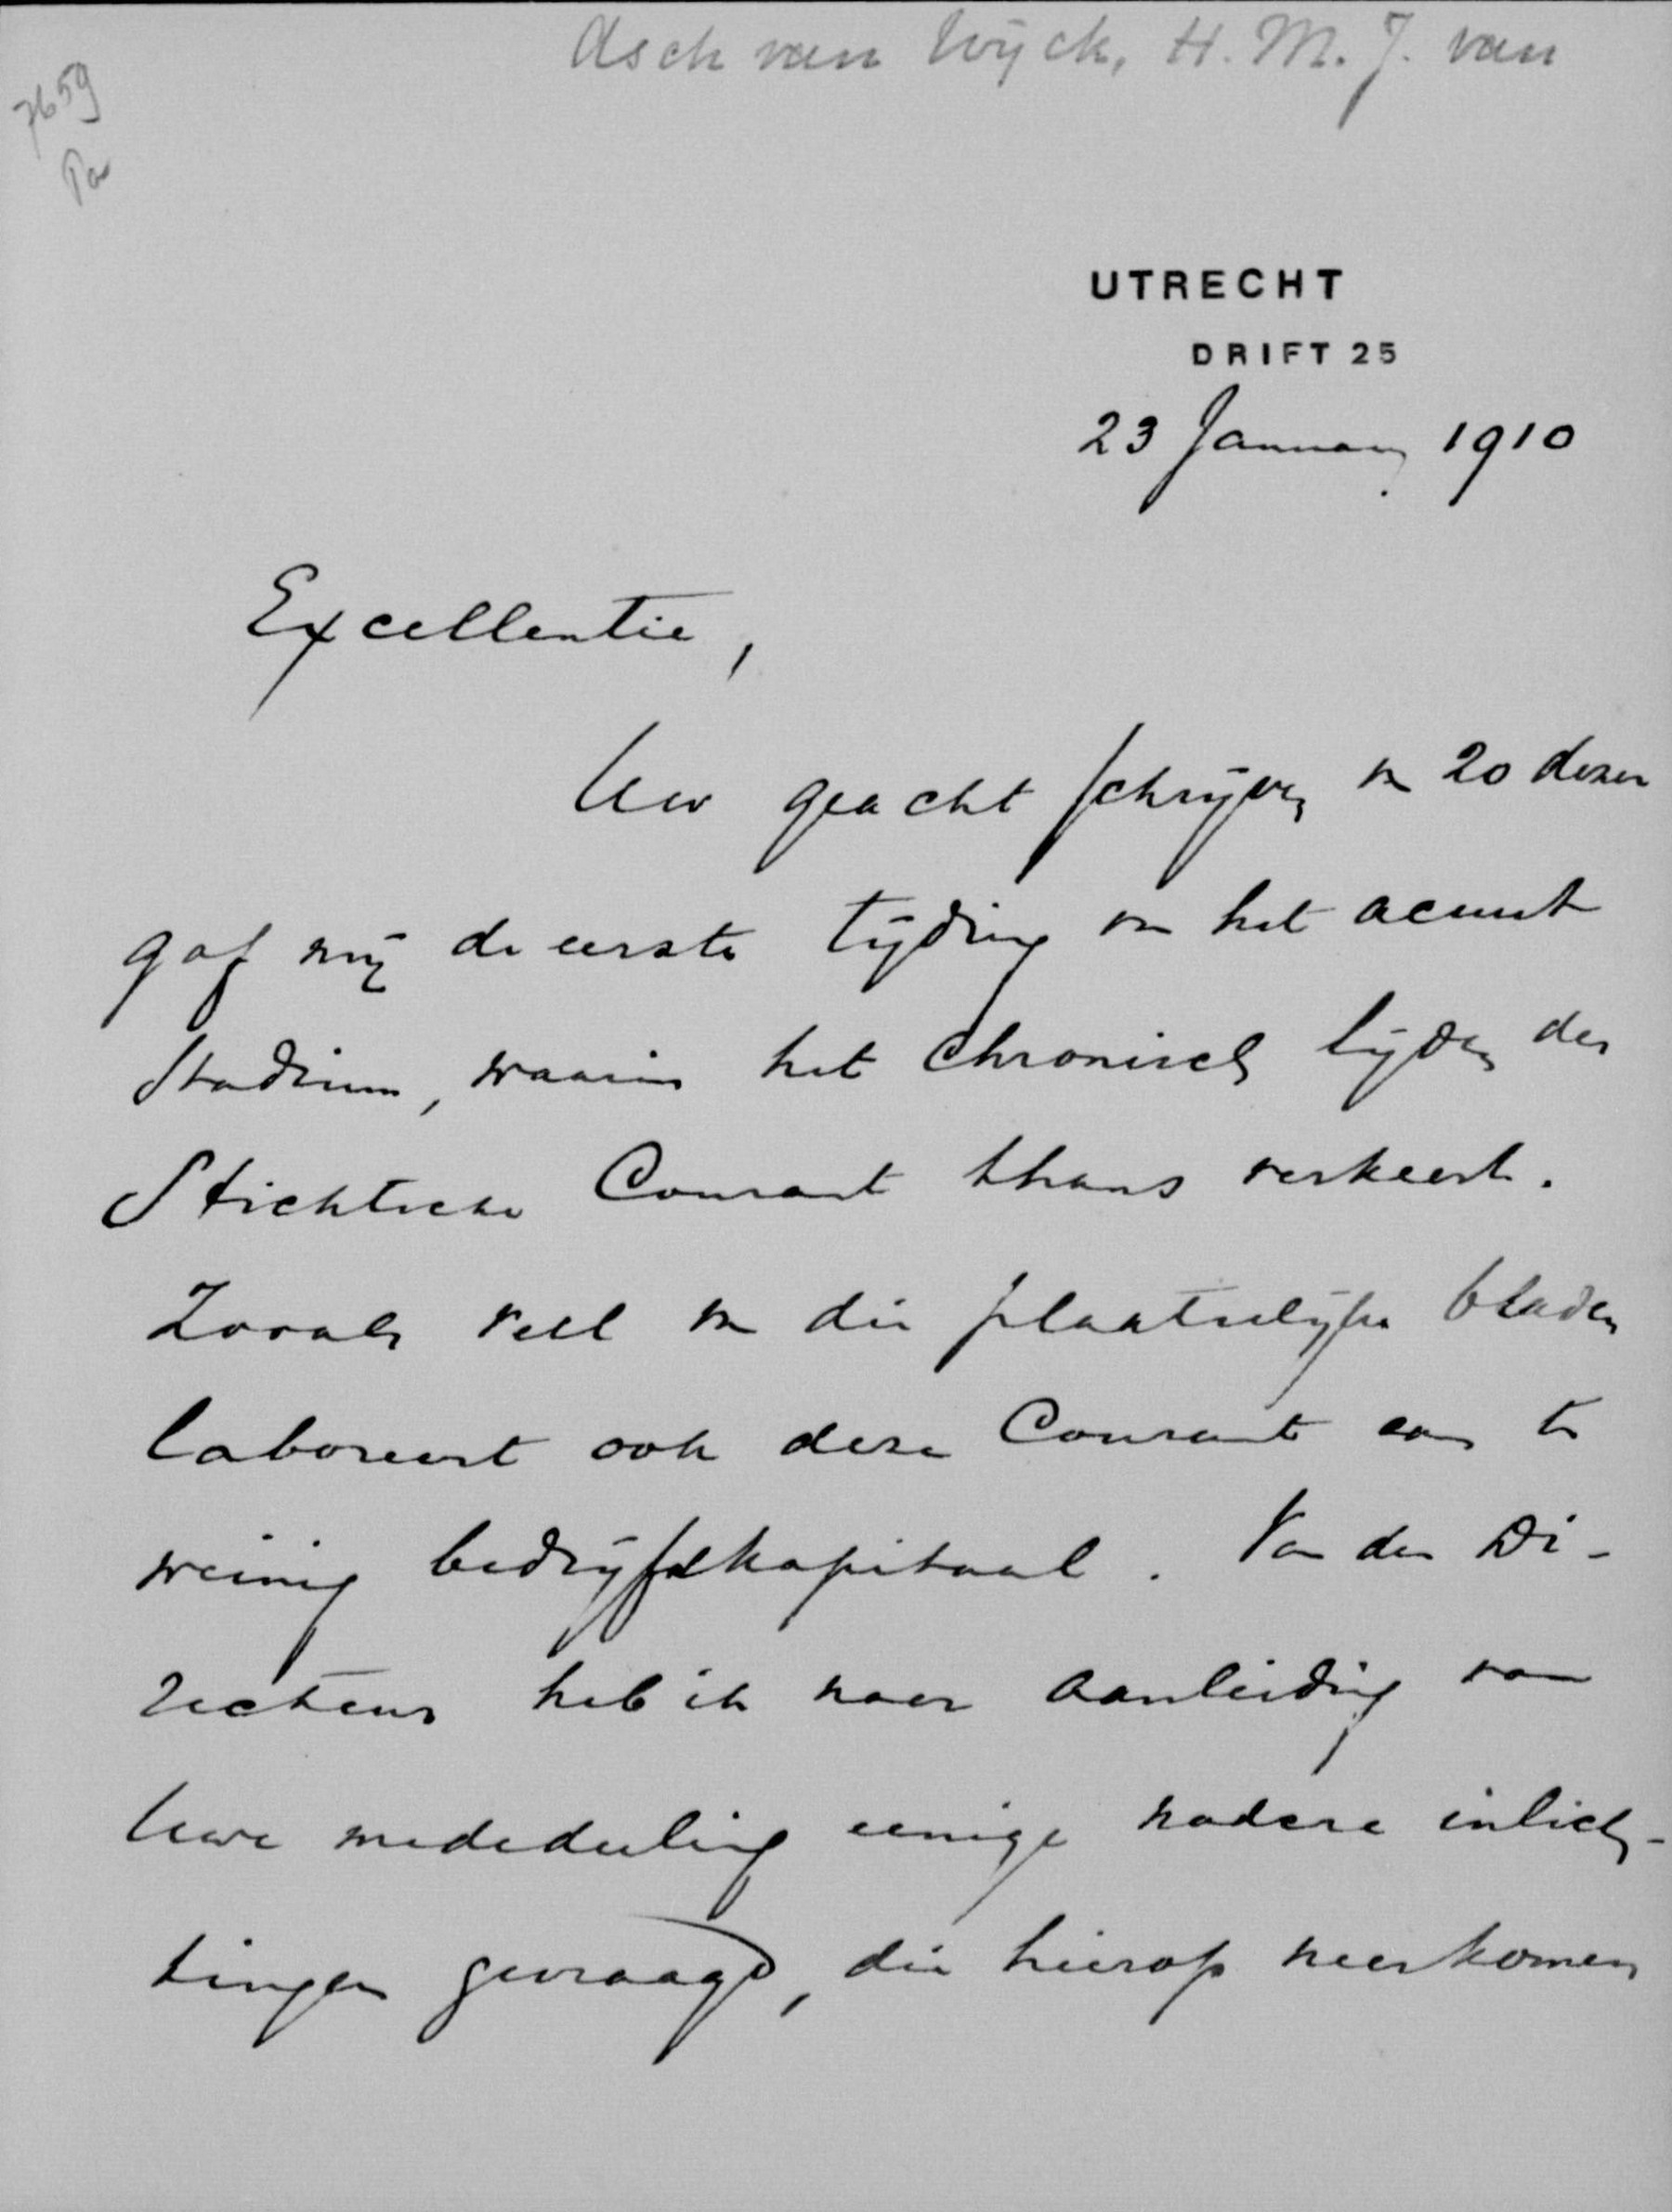 Asch van Wijck, H. M. J. van
7659
UTRECHT
DRIFT 25
23 January 1910
Excellentie,
Uw geacht schrijven v 20 dezer
gaf mij de eerste tijding van het acuut
stadium, waarin het chronisch lijden der
Stichtsche Courant thans verkeert.
Zooals veel van die plaatselijke bladen
laboreert ook deze Courant aan te
weinig bedrijfskapitaal. Van den Di-
recteur heb ik naar aanleiding van
Uwe mededeeling eenige nadere inlich-
tingen gevraagd, die hierop neerkomen